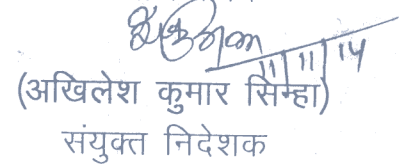 11/11/14
(अखिलेश कुमार सिन्हा)
संयुक्त निदेशक